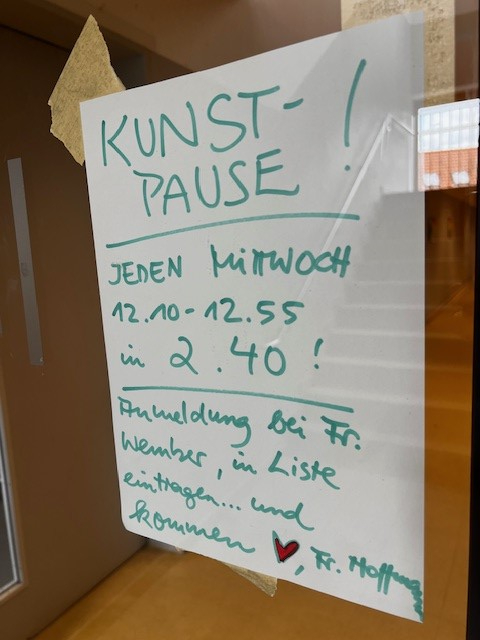 KUNST- !
PAUSE
JEDEN MITTWOCH
12.10-12.55
in 2.40!
Anmeldung bei Fr.
Wember, in Liste
eintragen... und
kommen ♥, Fr. Hoffmann